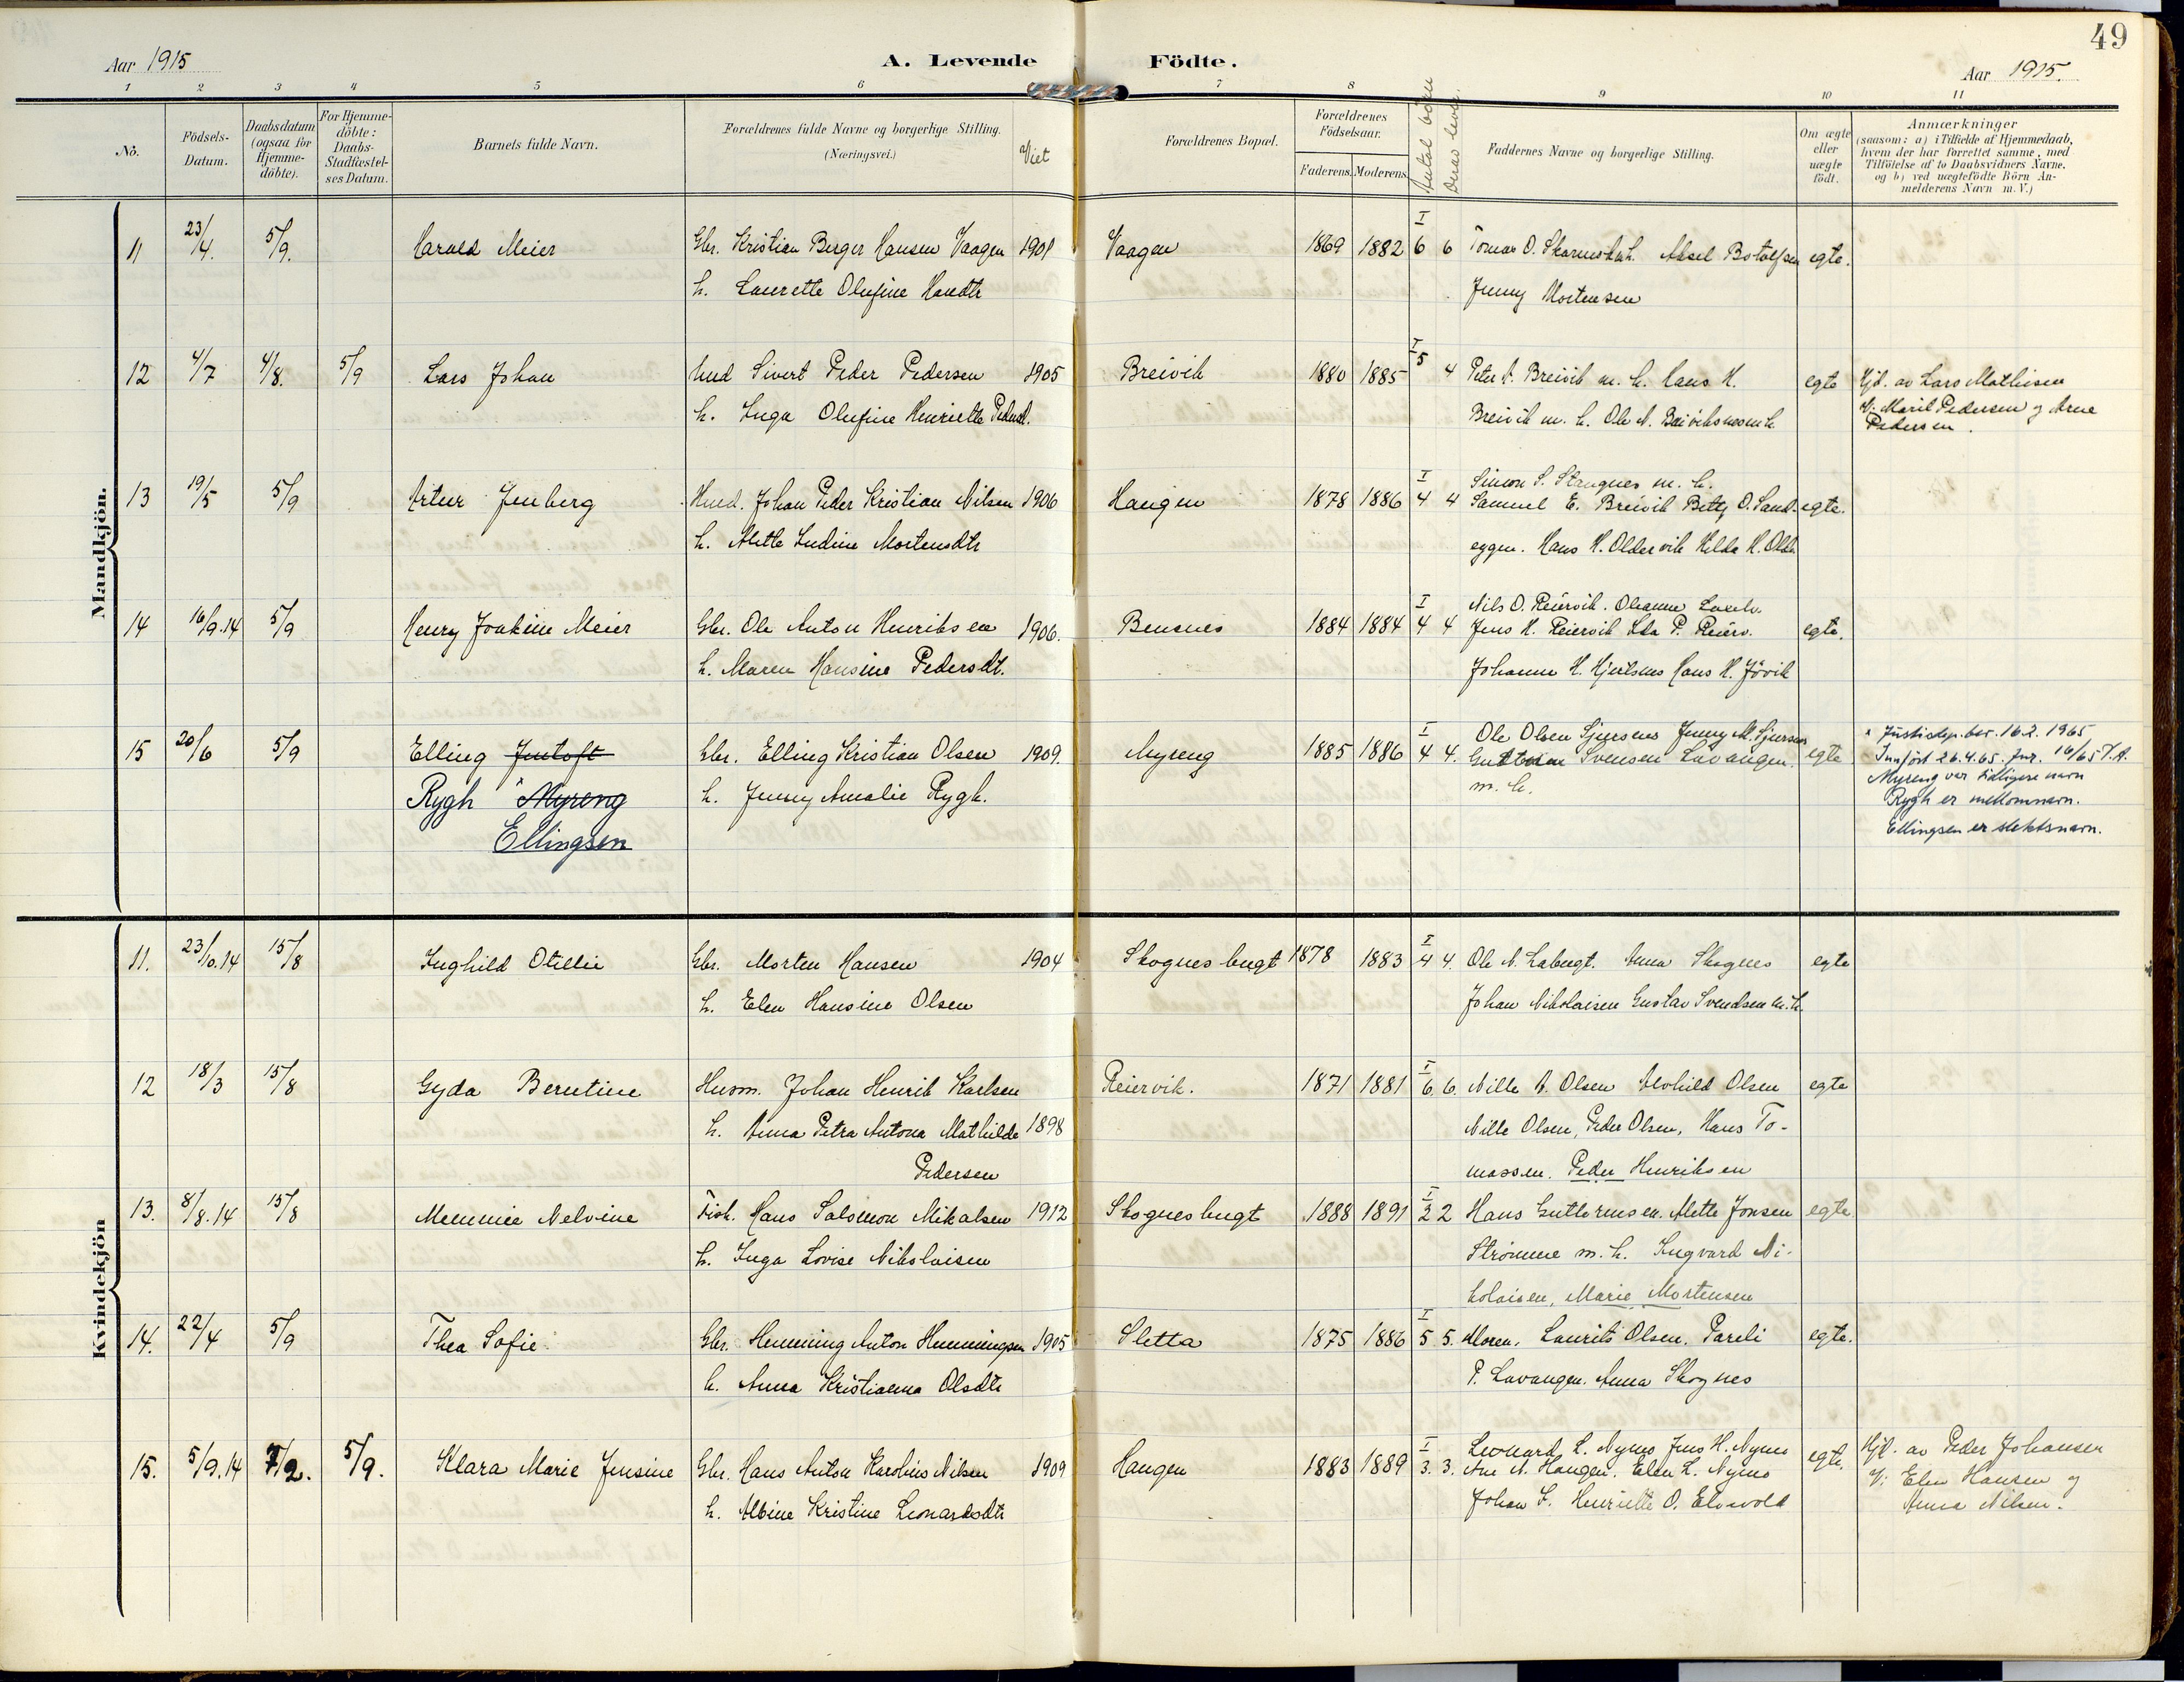 49
Aar 1915
A. Levende Födte.
Aar 1915.
1 2 3 4 5 6 7 8 9 10 11
No.
Födsels-Datum.
Daabsdatum (ogsaa for Hjemme-döbte).
For Hjemme-döbte: Daabs-Stadfæstel-ses Datum.
Barnets fulde Navn.
Forældrenes fulde Navne og borgerlige Stilling.
(Næringsvei.)
Viet
Forældrenes Bopæl.
Forældrenes Födselsaar.
Faderens. Moderens.
Antal börn
Derav lever.
Faddernes Navne og borgerlige Stilling.
Om ægte eller uægte födt.
Anmærkninger
(saasom: a) i Tilfælde af Hjemmedaab,
hvem der har forrettet samme, med
Tilföielse af to Daabsvidners Navne.
og b) ved uægtefödte Börn An-
melderens Navn m. V.)
Mandkjön.
11 23/4. 5/9. Harald Meier Gbr. Kristian Berger Hansen Vaagen 1901 Vaagen 1869 1882 I 6 6 Aksel Botolfsen egte.
h. Laurette Olufine Hansdtr Jenny Mortensen
12 4/7 4/8. 5/9 Lars Johan Sivert Peder Pedersen 1905 Breivik 1880 1885 I 5 4 Peter A. Breivik m. h. Hans H. egte Hjd. av Lars Mathisen
h. Inga Olufine Henriette Breivik m. h. Ole N. V: Marit Pedersen og Arne
Pedersen.
13 19/5 5/9 Artur Jenberg Johan Peder Kristian Nilsen 1906 Haugen 1878 1886 I 4 4 Simon S. Stangnes m. h.
Samuel E. Breivik Betty O. Sand- egte.
h. Alette Ludine Mortensdtr eggen. Hans H. Oldervik Hilda H.
14 16/9.14 5/9 Henry Joakim Meier Gbr. Ole Anton Henriksen 1906. Bensnes 1884 1884 I 4 4 Nils O. Reiervik. Oleanna
Jens H. Reiervik P. Reierv. egte.
h. Maren Hansine Pedersdt. Johanna H. Hans H. Jövik
15 20/6 5/9 Elling Jentoft Gbr. Elling Kristian Olsen 1909. Myreng 1885 1886 I 4 4. Ole Olsen Sjursnes Jenny M. Sjursnes
Svensen Lavangen. egte
Rygh "Myreng h. Jenny Amalie Rygh. m. h.
Ellingsen
" Justisdep. bev. 16.2. 1965
Innført 26.4.65. jnr. 16/65 T.A.
Myreng var tidligere navn
Rygh er mellomnavn.
Ellingsen er slektsnavn.
Kvindekjön
11. 23/10.14 15/8 Inghild Otillie Gbr. Morten Hansen 1904 Skognesbugt 1878 1883 I 4 4. Ole N. Anna Skognes egte
h. Elen Hansine Olsen Johan Nikolaisen Gustav Svendsen m. h.
12 18/3 15/8 Gyda Berntine Husm. Johan Henrik Karlsen Reiervik. 1871 1881 I 6. 6. Nille A. Olsen Alvhild Olsen egte
h. Anna Petra Antona Mathilde 1898 Nille Olsen, Peder Olsen, Hans To-
Pedersen massen. Peder Henriksen
13. 8/8.14 15/8 Memmie Nelvine Fisk. Hans Salomon Mikalsen 1912 Skognesbugt 1888 1891 I 2 2 Hans Guttormsen. Alette Jonsen egte.
h. Inga Lovise Nikolaisen Strömme m. h. Ingvard Ni-
kolaisen, Marie Mortensen
14. 22/4 5/9 Thea Sofie Gbr. Henning Anton Henningsen 1905 Sletta 1875 1886 I 5 5. Moren, Laurits Olsen. Pareli egte.
h. Anna Kristianna Olsdtr P. Lavangen. Anna Skognes
15. 5/9.14 7/2. 5/9. Klara Marie Jensine Gbr. Hans Anton Karolius Nilsen 1909 Haugen 1883 1889 I 3. 3. Leonard L. Nymo Jens H. Nymo egte. Hjd. av Peder Johansen
Ane N. Haugen. Elen L. Nymo V: Elen Hansen og
h. Albine Kristine Leonardsdtr Johan L. Henriette O. Elvevold Anna Nilsen.